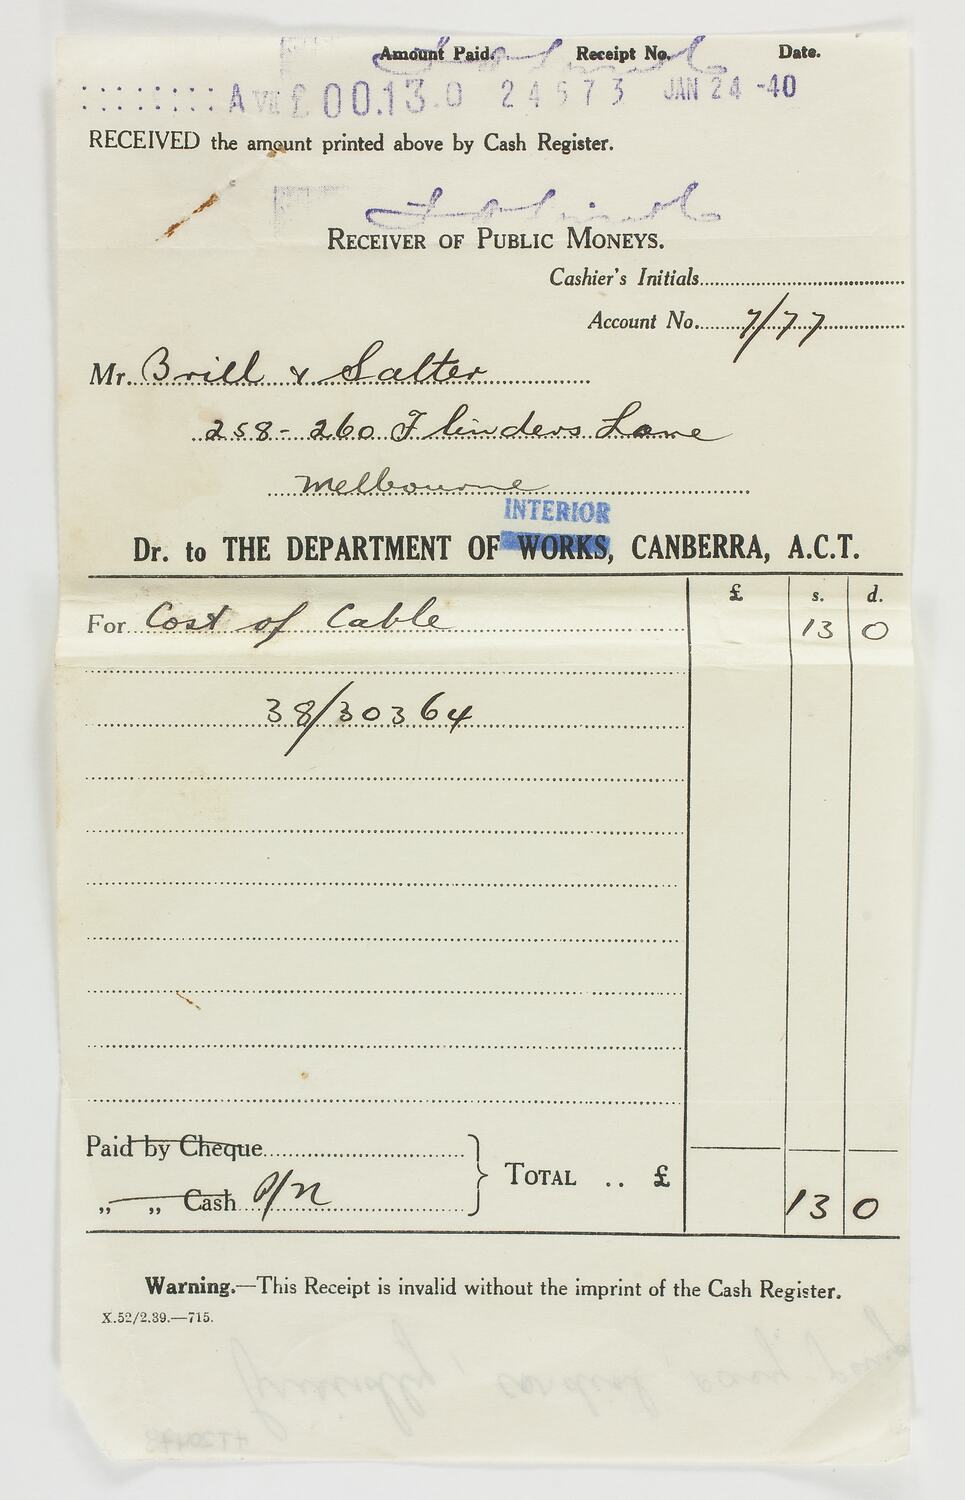 Amount Paid. Receipt No. Date.
A £ 00.13.0 24573 JAN 24 -40
RECEIVED the amount printed above by Cash Register.
RECEIVER OF PUBLIC MONEYS.
Cashier's Initials
Account No. 7/77
Mr. Brill & Salter
258-260 Flinders Lane
Melbourne
INTERIOR
Dr. to THE DEPARTMENT OF WORKS, CANBERRA, A.C.T.
£ s. d.
For Cost of Cable 13 0
38/30364
Paid by Cheque
„ „ Cash P/N
TOTAL .. £ 13 0
Warning.—This Receipt is invalid without the imprint of the Cash Register.
X.52/2.39.—715.